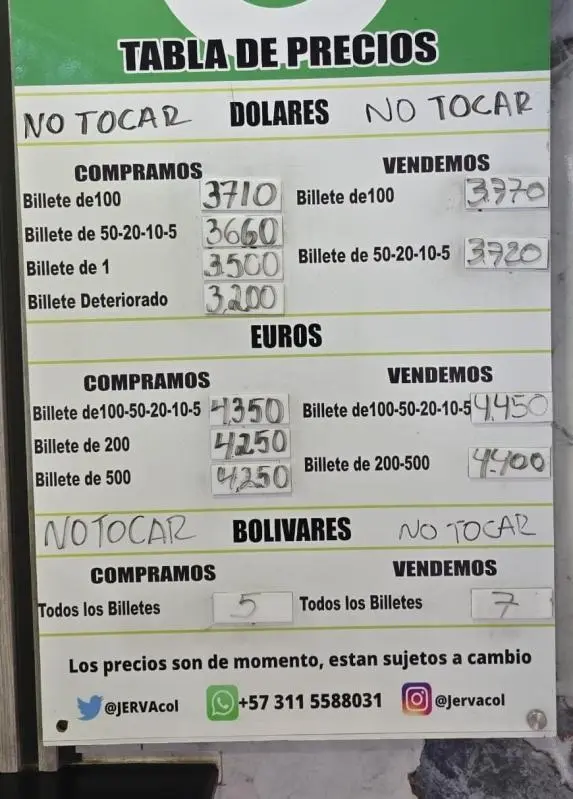 TABLA DE PRECIOS
NO TOCAR DOLARES NO TOCAR
COMPRAMOS VENDEMOS
Billete de100 3710 Billete de100 3.770
Billete de 50-20-10-5 3660 Billete de 50-20-10-5 3.720
Billete de 1 3.500
Billete Deteriorado 3,200
EUROS
COMPRAMOS VENDEMOS
Billete de100-50-20-10-5 4.350 Billete de100-50-20-10-5 4.450
Billete de 200 4.250 Billete de 200-500 4.400
Billete de 500 4.250
NO TOCAR BOLIVARES NO TOCAR
COMPRAMOS VENDEMOS
Todos los Billetes 5 Todos los Billetes 7
Los precios son de momento, estan sujetos a cambio
@JERVAcol +57 311 5588031 @Jervacol